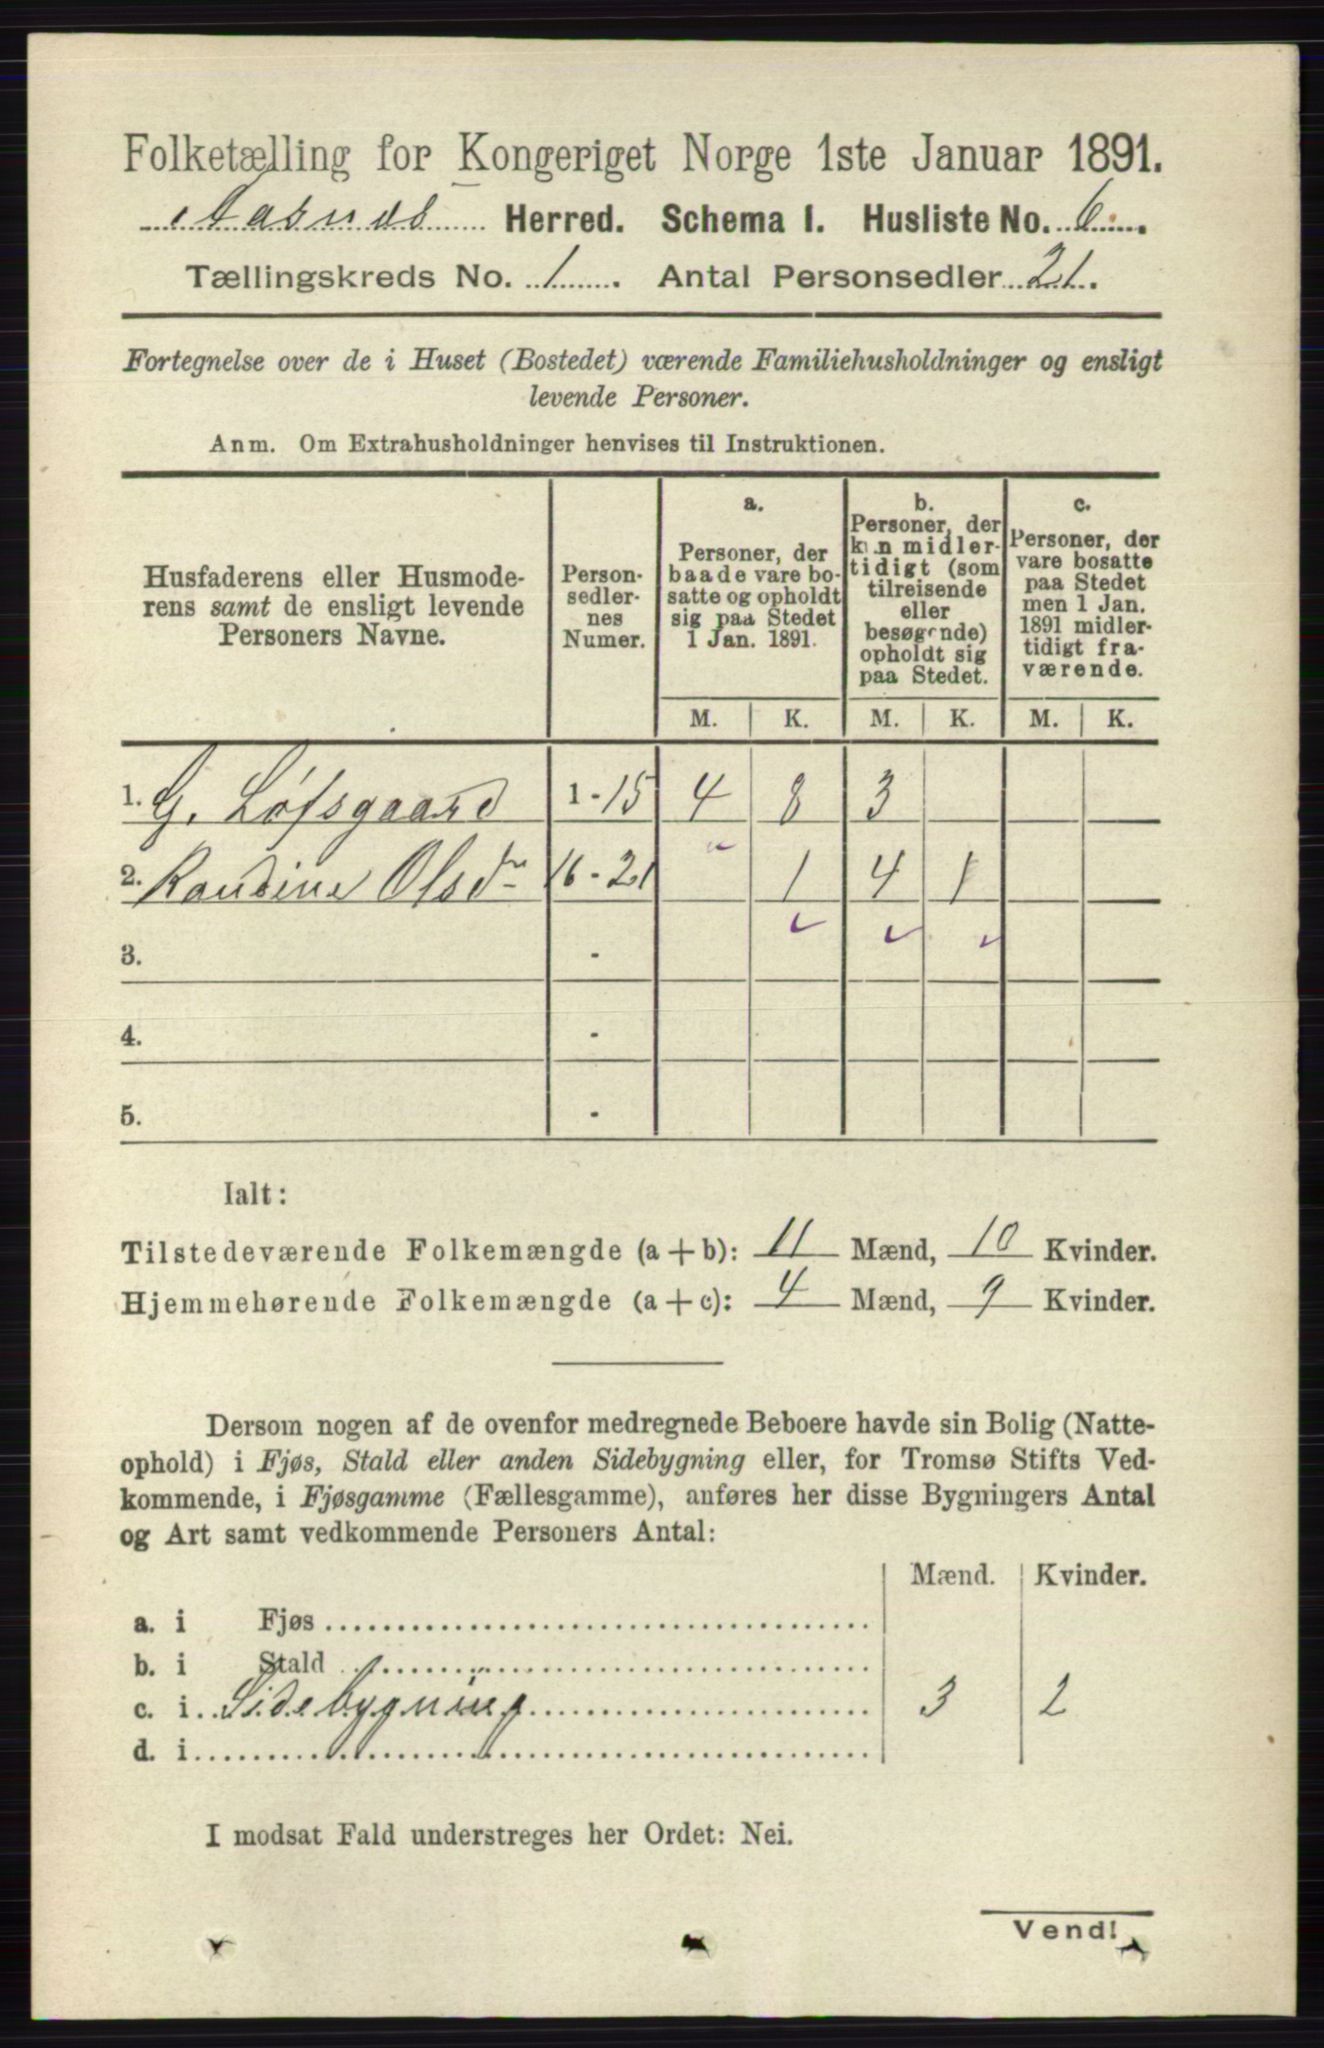 Folketælling for Kongeriget Norge 1ste Januar 1891.
Aasnes Herred. Schema 1. Husliste No. 6.
Tællingskreds No. 1. Antal Personsedler 21.
Fortegnelse over de i Huset (Bostedet) værende Familiehusholdninger og ensligt
levende Personer.
Anm. Om Extrahusholdninger henvises til Instruktionen.
Husfaderens eller Husmode-
rens samt de ensligt levende
Personers Navne.
Person-
sedler-
nes
Numer.
a.
Personer, der
baade vare bo-
satte og opholdt
sig paa Stedet
1 Jan. 1891.
b.
Personer, der
kun midler-
tidigt (som
tilreisende
eller
besøgende)
opholdt sig
paa Stedet.
c.
Personer, der
vare bosatte
paa Stedet
men 1 Jan.
1891 midler-
tidigt fra-
værende.
M. K. M. K. M. K.
1. G. Løfsgaard 1-15 4 8 3
2. Randine Olsdr 16-21 1 4 1
3. -
4. -
5. -
Ialt:
Tilstedeværende Folkemængde (a+b): 11 Mænd, 10 Kvinder.
Hjemmehørende Folkemængde (a+c): 4 Mænd, 9 Kvinder.
Dersom nogen af de ovenfor medregnede Beboere havde sin Bolig (Natte-
ophold) i Fjøs, Stald eller anden Sidebygning eller, for Tromsø Stifts Ved-
kommende, i Fjøsgamme (Fællesgamme), anføres her disse Bygningers Antal
og Art samt vedkommende Personers Antal:
Mænd. Kvinder.
a. i Fjøs
b. i Stald
c. i Sidebygning 3 2
d. i
I modsat Fald understreges her Ordet: Nei.
Vend!